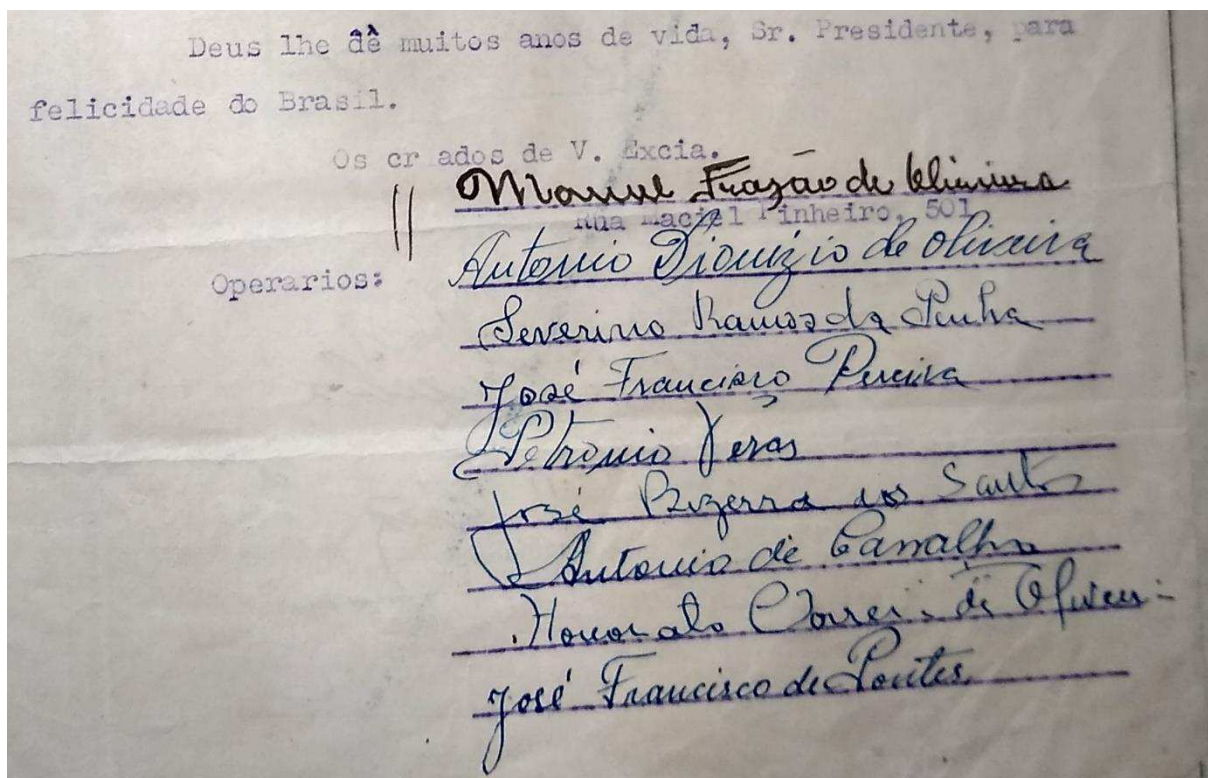 Deus lhe dê muitos anos de vida, Sr. Presidente, para
felicidade do Brasil.
Os cr ados de V. Excia.
Manuel Frazão de Oliveira
Rua Maciel Pinheiro, 501
Antonio Dionizio de Oliveira
Operarios:
Severino Ramos da Penha
José Francisco Pereira
Petronio Veras
José Bizerra dos Santos
Antonio de Carvalho
Honorato Correi. de Oliveir.
José Francisco de Pontes